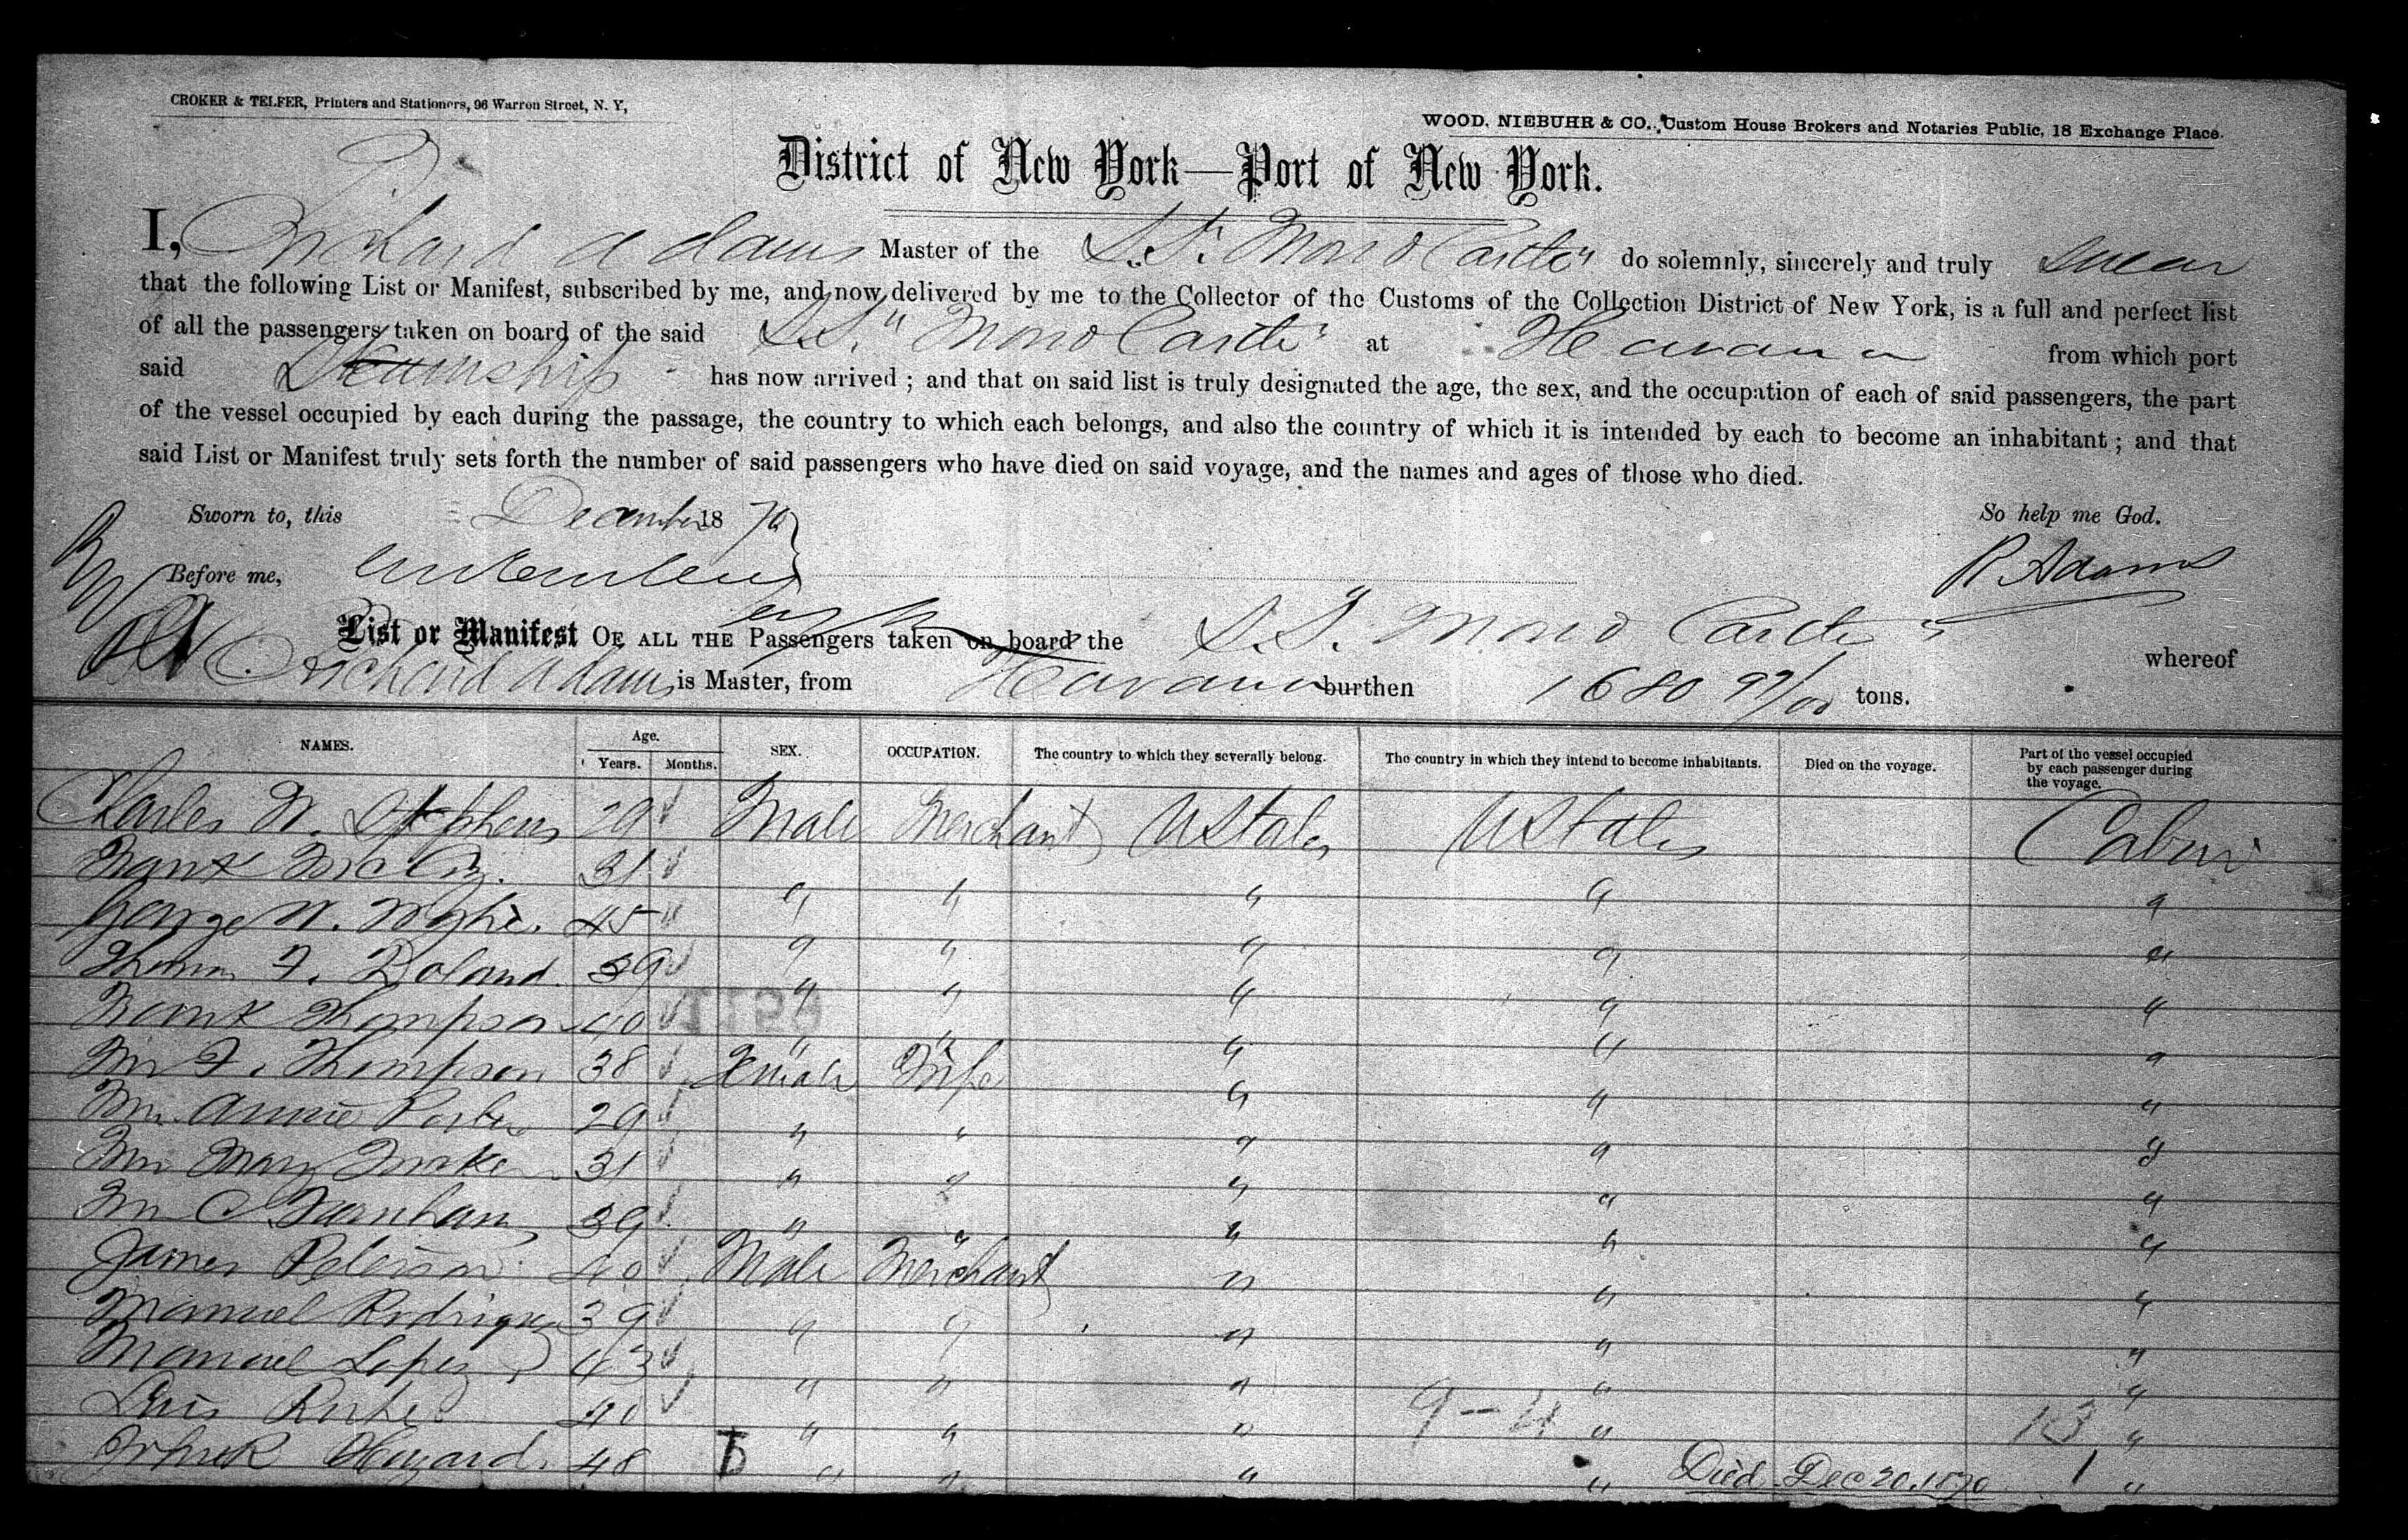 CROKER & TELFER, Printers and Stationers, 96 Warren Street, N. Y,
WOOD, NIEBUHR & CO., Custom House Brokers and Notaries Public, 18 Exchange Place.
District of New York—Port of New York.
I, Richard Adams Master of the S.S. "Morro Castle" do solemnly, sincerely and truly swear
that the following List or Manifest, subscribed by me, and now delivered by me to the Collector of the Customs of the Collection District of New York, is a full and perfect list
of all the passengers taken on board of the said S.S. "Morro Castle" at Havana from which port
said Steamship has now arrived ; and that on said list is truly designated the age, the sex, and the occupation of each of said passengers, the part
of the vessel occupied by each during the passage, the country to which each belongs, and also the country of which it is intended by each to become an inhabitant ; and that
said List or Manifest truly sets forth the number of said passengers who have died on said voyage, and the names and ages of those who died.
Sworn to, this December 1870 So help me God.
Before me, R Adams
List or Manifest OF ALL THE Passengers taken on board the S.S. Morro Castle" whereof
Richard Adams is Master, from Havana burthen 1680 97/100 tons.
NAMES. Age. Years. Months. SEX. OCCUPATION. The country to which they severally belong. The country in which they intend to become inhabitants. Died on the voyage. Part of the vessel occupied by each passenger during the voyage.
Charles W. Stephens 29 Male Merchant U States U States Cabin
Frank 31 " " " " "
George W. 45 " " " " "
Thomas F. Boland 39 " " " " "
Frank Thompson 40 " " " " "
Mrs F. Thompson 38 Female Wife " " "
Mrs Annie 29 " " " " "
Mrs Mary 31 " " " " "
Mrs C Farnham 39 " " " " "
James Peterson 40 Male Merchant " " "
Manuel Rodriguez 39 " " " " "
Manuel Lopez 43 " " " " "
Luis 40 " " " 9-4 " 13 "
Hazard. 48 " " " " Died Dec 20. 1870 1 "